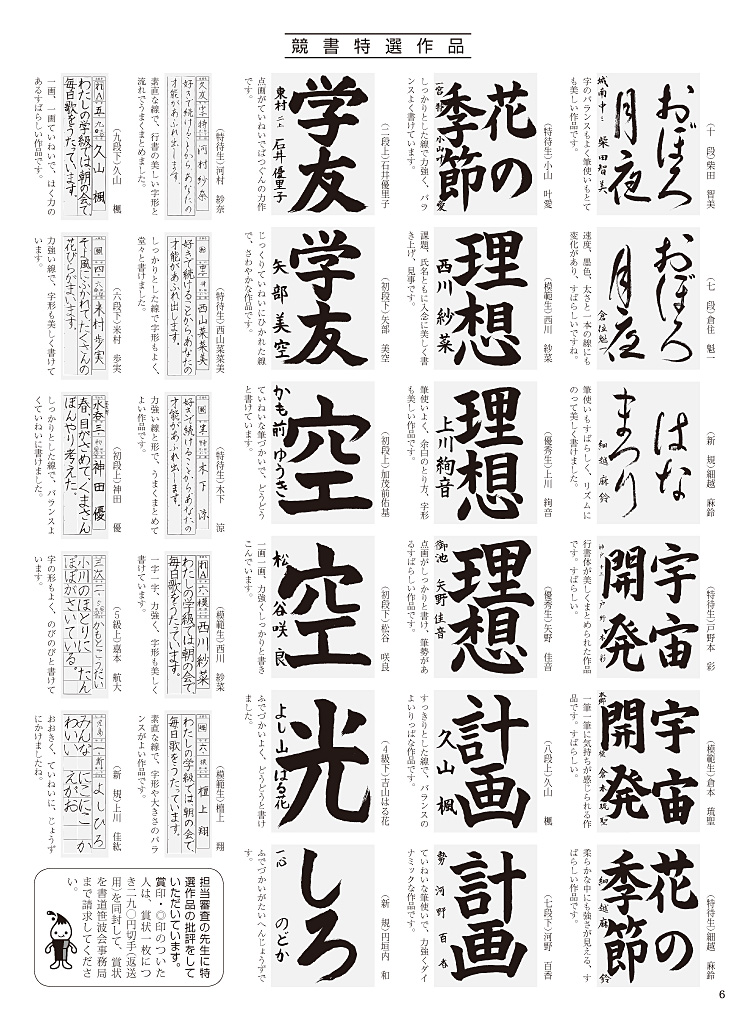 競書特選作品
おぼろ
月夜
城南中三 柴田智美
(十 段)柴田 智美
字のバランスもよく筆使いもとて
も美しい作品です。
おぼろ
月夜
倉住魁
(七 段)倉住 魁一
速度、墨色、太さと一本の線にも
変化があり、すばらしいですね。
はな
まつり
細越麻鈴
(新 規)細越 麻鈴
筆使いもすばらしく、リズムに
のって美しく書けました。
宇宙
開発
(特待生)戸野本 彩
行書体が美しくまとめられた作品
です。すばらしい。
宇宙
開発
(模範生)倉本 琉聖
一筆一筆に気持ちが感じられる作
品です。すばらしい。
花の
季節
細越麻鈴
(特待生)細越 麻鈴
柔らかな中にも強さが見える、す
ばらしい作品です。
花の
季節
(特待生)小山 叶愛
しっかりとした線で力強く、バラ
ンスよく書けています。
理想
西川紗菜
(模範生)西川 紗菜
課題、氏名ともに入念に美しく書
き上げ、見事です。
理想
上川絢音
(優秀生)上川 絢音
筆使いよく、余白のとり方、字形
も美しい作品です。
理想
御池 矢野佳音
(優秀生)矢野 佳音
点画がしっかりと書け、筆勢があ
るすばらしい作品です。
計画
久山楓
(八段上)久山 楓
すっきりとした線で、バランスの
よいりっぱな作品です。
計画
河野百香
(七段下)河野 百香
ていねいな筆使いで、力強くダイ
ナミックな作品です。
学友
東村 二上 石井優里子
(二段上)石井優里子
点画がていねいでばつぐんの力作
です。
学友
矢部美空
(初段下)矢部 美空
じっくりていねいにひかれた線
で、さわやかな作品です。
空
かも前ゆうき
(初段上)加茂前佑基
ていねいな筆づかいで、どうどう
と書けています。
空
松谷咲良
(初段下)松谷 咲良
一画一画、力強くしっかりと書き
こんでいます。
光
よし山はる花
(4級下)吉山はる花
ふでづかいよく、どうどうと書け
ました。
しろ
のどか
(新 規)円垣内 和
ふでづかいがたいへんじょうずで
す。
河村紗奈
好きで続けることからあなたの
才能があふれ出します。
(特待生)河村 紗奈
素直な線で、行書の美しい字形と
流れでうまくまとめました。
西山菜菜美
好きで続けることからあなたの
才能があふれ出します。
(特待生)西山菜菜美
しっかりとした線で字形もよく、
堂々と書けました。
木下涼
好きで続けることからあなたの
才能があふれ出します。
(特待生)木下 涼
力強い線と形で、うまくまとめて
よい作品です。
西川紗菜
わたしの学級では朝の会で
毎日歌をうたっています。
(模範生)西川 紗菜
一字一字、力強く、字形も美しく
書けています。
檀上翔
わたしの学級では朝の会で、
毎日歌をうたっています。
(模範生)檀上 翔
素直な線で、字形や大きさのバラ
ンスがよい作品です。
久山楓
わたしの学級では朝の会で
毎日歌をうたっています。
(九段下)久山 楓
一画、一画ていねいで、はく力の
あるすばらしい作品です。
米村歩実
そよ風にふかれて、たくさんの
花びらがまいます。
(六段下)米村 歩実
力強い線で、字形も美しく書けて
います。
神田優
春、目がさめて、くまさん
ぼんやり考えた。
(初段上)神田 優
しっかりとした線で、バランスよ
くていねいに書けました。
小川のほとりに たん
ぽぽがさいている。
(5級上)嘉本 航大
字の形もよく、のびのびと書けて
います。
よしひろ
みんな にこにこ か
わいい えがお
(新 規)上川 佳紘
おおきく、ていねいに、じょうず
にかけましたね。
担当審査の先生に特
選作品の批評をして
いただいています。
賞印・◎印のついた
人は、賞状一枚につ
き二九〇円切手(返送
用)を同封して、賞状
を書道笹波会事務局
まで請求してくださ
い。
6